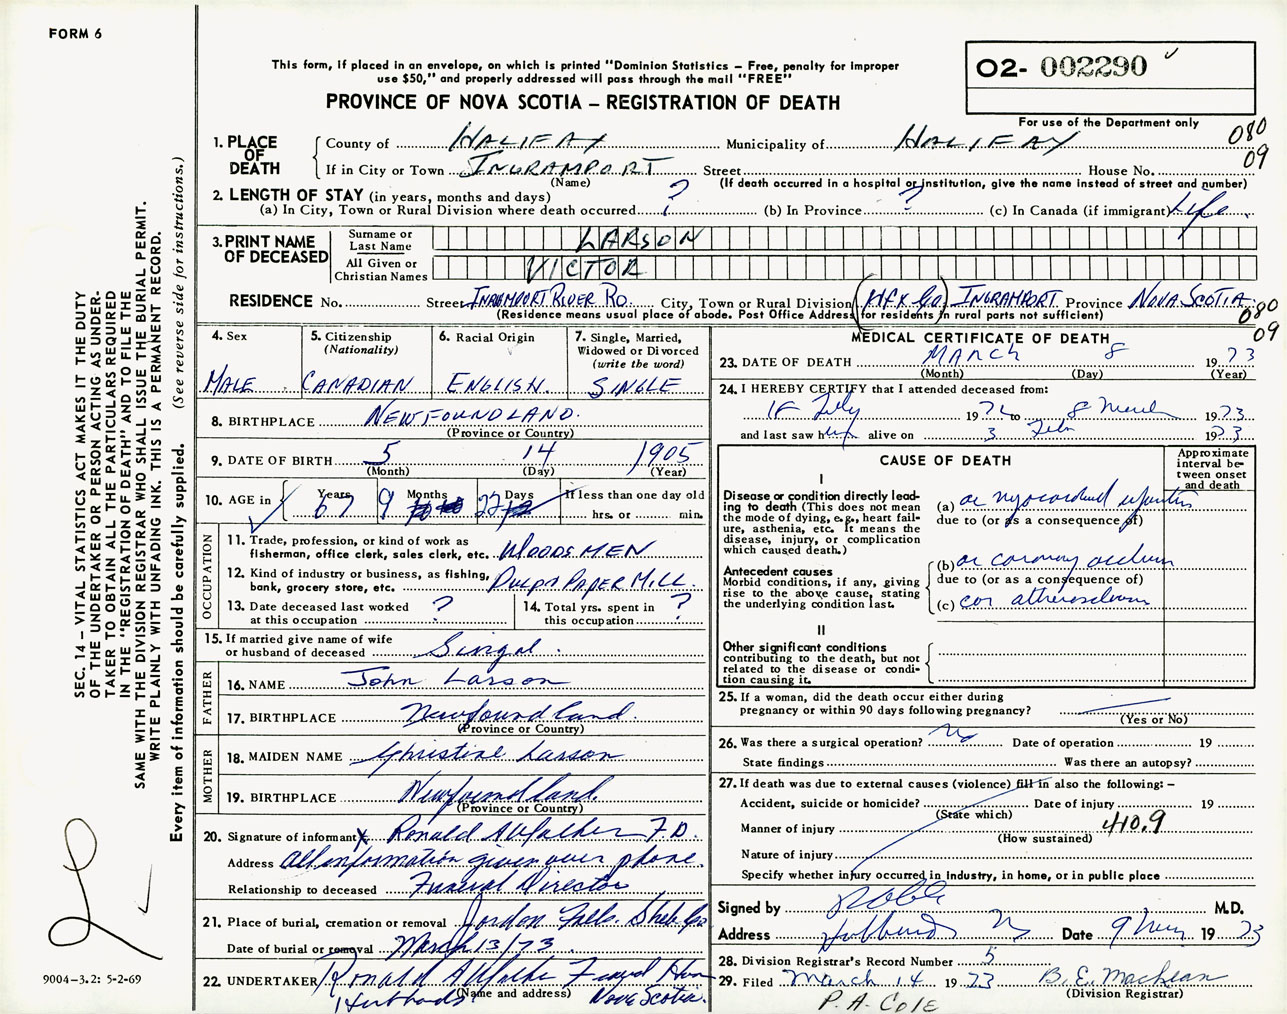 FORM 6
This form, if placed in an envelope, on which is printed "Dominion Statistics – Free, penalty for improper
use $50," and properly addressed will pass through the mail "FREE"
PROVINCE OF NOVA SCOTIA – REGISTRATION OF DEATH
02- 002290
For use of the Department only
080
09
1. PLACE OF DEATH
County of HALIFAX Municipality of HALIFAX
If in City or Town INGRAMPORT Street House No.
(Name) (If death occurred in a hospital or institution, give the name instead of street and number)
2. LENGTH OF STAY (in years, months and days)
(a) In City, Town or Rural Division where death occurred ? (b) In Province ? (c) In Canada (if immigrant) Life
3. PRINT NAME OF DECEASED
Surname or Last Name LARSON
All Given or Christian Names VICTOR
RESIDENCE No. Street INGRAMPORT RIVER RD. City, Town or Rural Division (HFX Co) INGRAMPORT Province NOVA SCOTIA
(Residence means usual place of abode. Post Office Address for residents in rural parts not sufficient)
080
09
4. Sex
MALE
5. Citizenship
(Nationality)
CANADIAN
6. Racial Origin
ENGLISH.
7. Single, Married,
Widowed or Divorced
(write the word)
SINGLE
8. BIRTHPLACE NEWFOUNDLAND.
(Province or Country)
9. DATE OF BIRTH 5 14 1905
(Month) (Day) (Year)
10. AGE in Years 67 Months 9 Days 22 If less than one day old
hrs. or min.
OCCUPATION
11. Trade, profession, or kind of work as
fisherman, office clerk, sales clerk, etc. WOODS MEN
12. Kind of industry or business, as fishing,
bank, grocery store, etc. PULP & PAPER MILL.
13. Date deceased last worked
at this occupation ?
14. Total yrs. spent in
this occupation ?
15. If married give name of wife
or husband of deceased Singal.
FATHER
16. NAME John Larson
17. BIRTHPLACE Newfoundland.
(Province or Country)
MOTHER
18. MAIDEN NAME Christine Larson
19. BIRTHPLACE Newfoundland.
(Province or Country)
20. Signature of informant X Ronald F.D.
Address All information given over phone.
Relationship to deceased Funeral Director
21. Place of burial, cremation or removal Jordon Falls. Shelb Co
Date of burial or removal March 13/73.
22. UNDERTAKER Ronald Funeral Home
(Name and address)
Hubbards Nova Scotia.
MEDICAL CERTIFICATE OF DEATH
23. DATE OF DEATH MARCH 8 1973
(Month) (Day) (Year)
24. I HEREBY CERTIFY that I attended deceased from:
1972 to 8 March 1973
and last saw him alive on 3 Feb 1973
CAUSE OF DEATH
Approximate
interval be-
tween onset
and death
I
Disease or condition directly lead-
ing to death (This does not mean
the mode of dying, e.g., heart fail-
ure, asthenia, etc. It means the
disease, injury, or complication
which caused death.)
(a) ac myocardial infarction
due to (or as a consequence of)
Antecedent causes
Morbid conditions, if any, giving
rise to the above cause, stating
the underlying condition last.
(b) ac coronary occlusion
due to (or as a consequence of)
(c) cor atherosclerosis
II
Other significant conditions
contributing to the death, but not
related to the disease or condi-
tion causing it.
25. If a woman, did the death occur either during
pregnancy or within 90 days following pregnancy?
(Yes or No)
26. Was there a surgical operation? No Date of operation 19
State findings Was there an autopsy?
27. If death was due to external causes (violence) fill in also the following: –
Accident, suicide or homicide? Date of injury 19
(State which)
Manner of injury 410.9
(How sustained)
Nature of injury
Specify whether injury occurred in industry, in home, or in public place
Signed by M.D.
Address Hubbards NS Date 9 Mar 1973
28. Division Registrar's Record Number 5
29. Filed March 14 1973 B. E. MacLean
(Division Registrar)
P. A. COLE
SEC. 14 – VITAL STATISTICS ACT MAKES IT THE DUTY
OF THE UNDERTAKER OR PERSON ACTING AS UNDER-
TAKER TO OBTAIN ALL THE PARTICULARS REQUIRED
IN THE "REGISTRATION OF DEATH" AND TO FILE THE
SAME WITH THE DIVISION REGISTRAR WHO SHALL ISSUE THE BURIAL PERMIT.
WRITE PLAINLY WITH UNFADING INK. THIS IS A PERMANENT RECORD.
Every item of information should be carefully supplied. (See reverse side for instructions.)
9004-3.2: 5-2-69